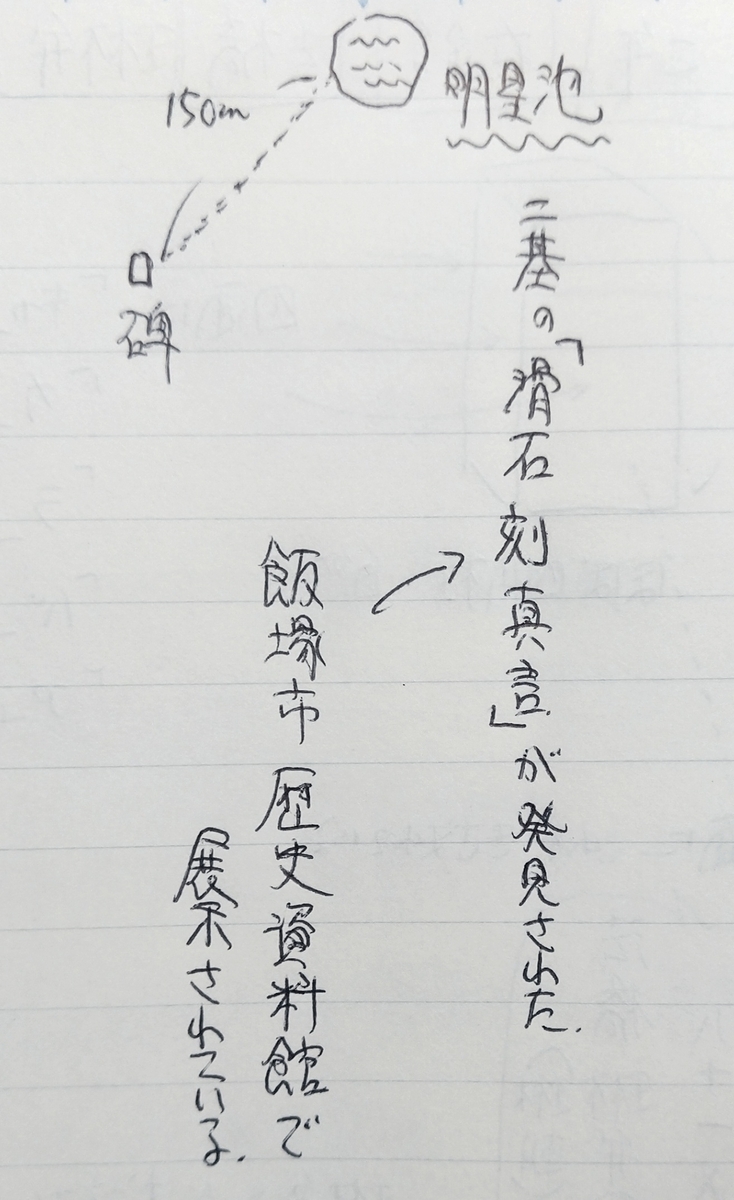 明星池
150m
碑
二基の「滑石刻真言」が発見された.
飯塚市歴史資料館で
展示されている.